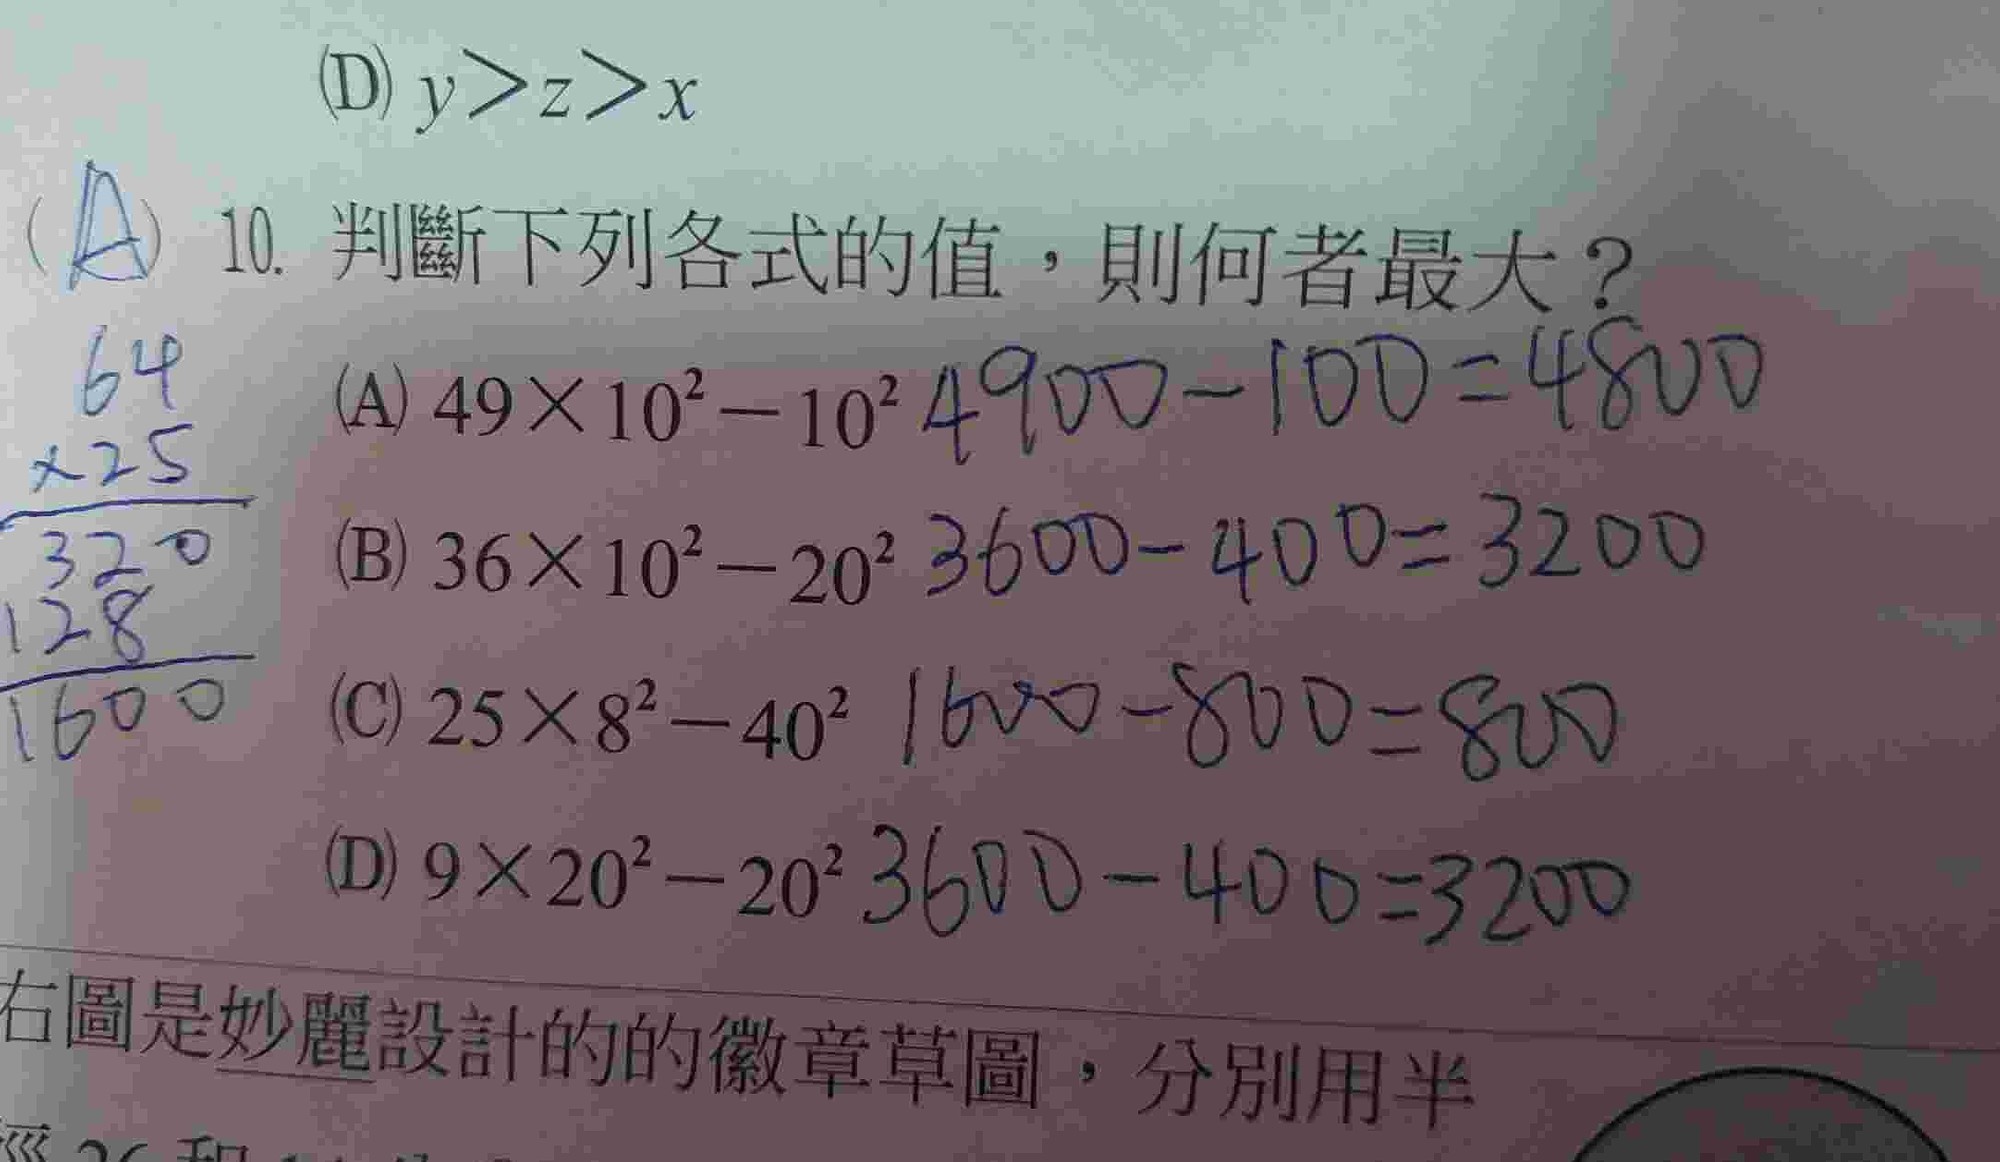 (D) y＞z＞x
(A) 10. 判斷下列各式的值，則何者最大？
(A) 49×10²－10² 4900－100＝4800
(B) 36×10²－20² 3600－400＝3200
(C) 25×8²－40² 1600－800＝800
(D) 9×20²－20² 3600－400＝3200
64
×25
320
128
1600
右圖是妙麗設計的的徽章草圖，分別用半